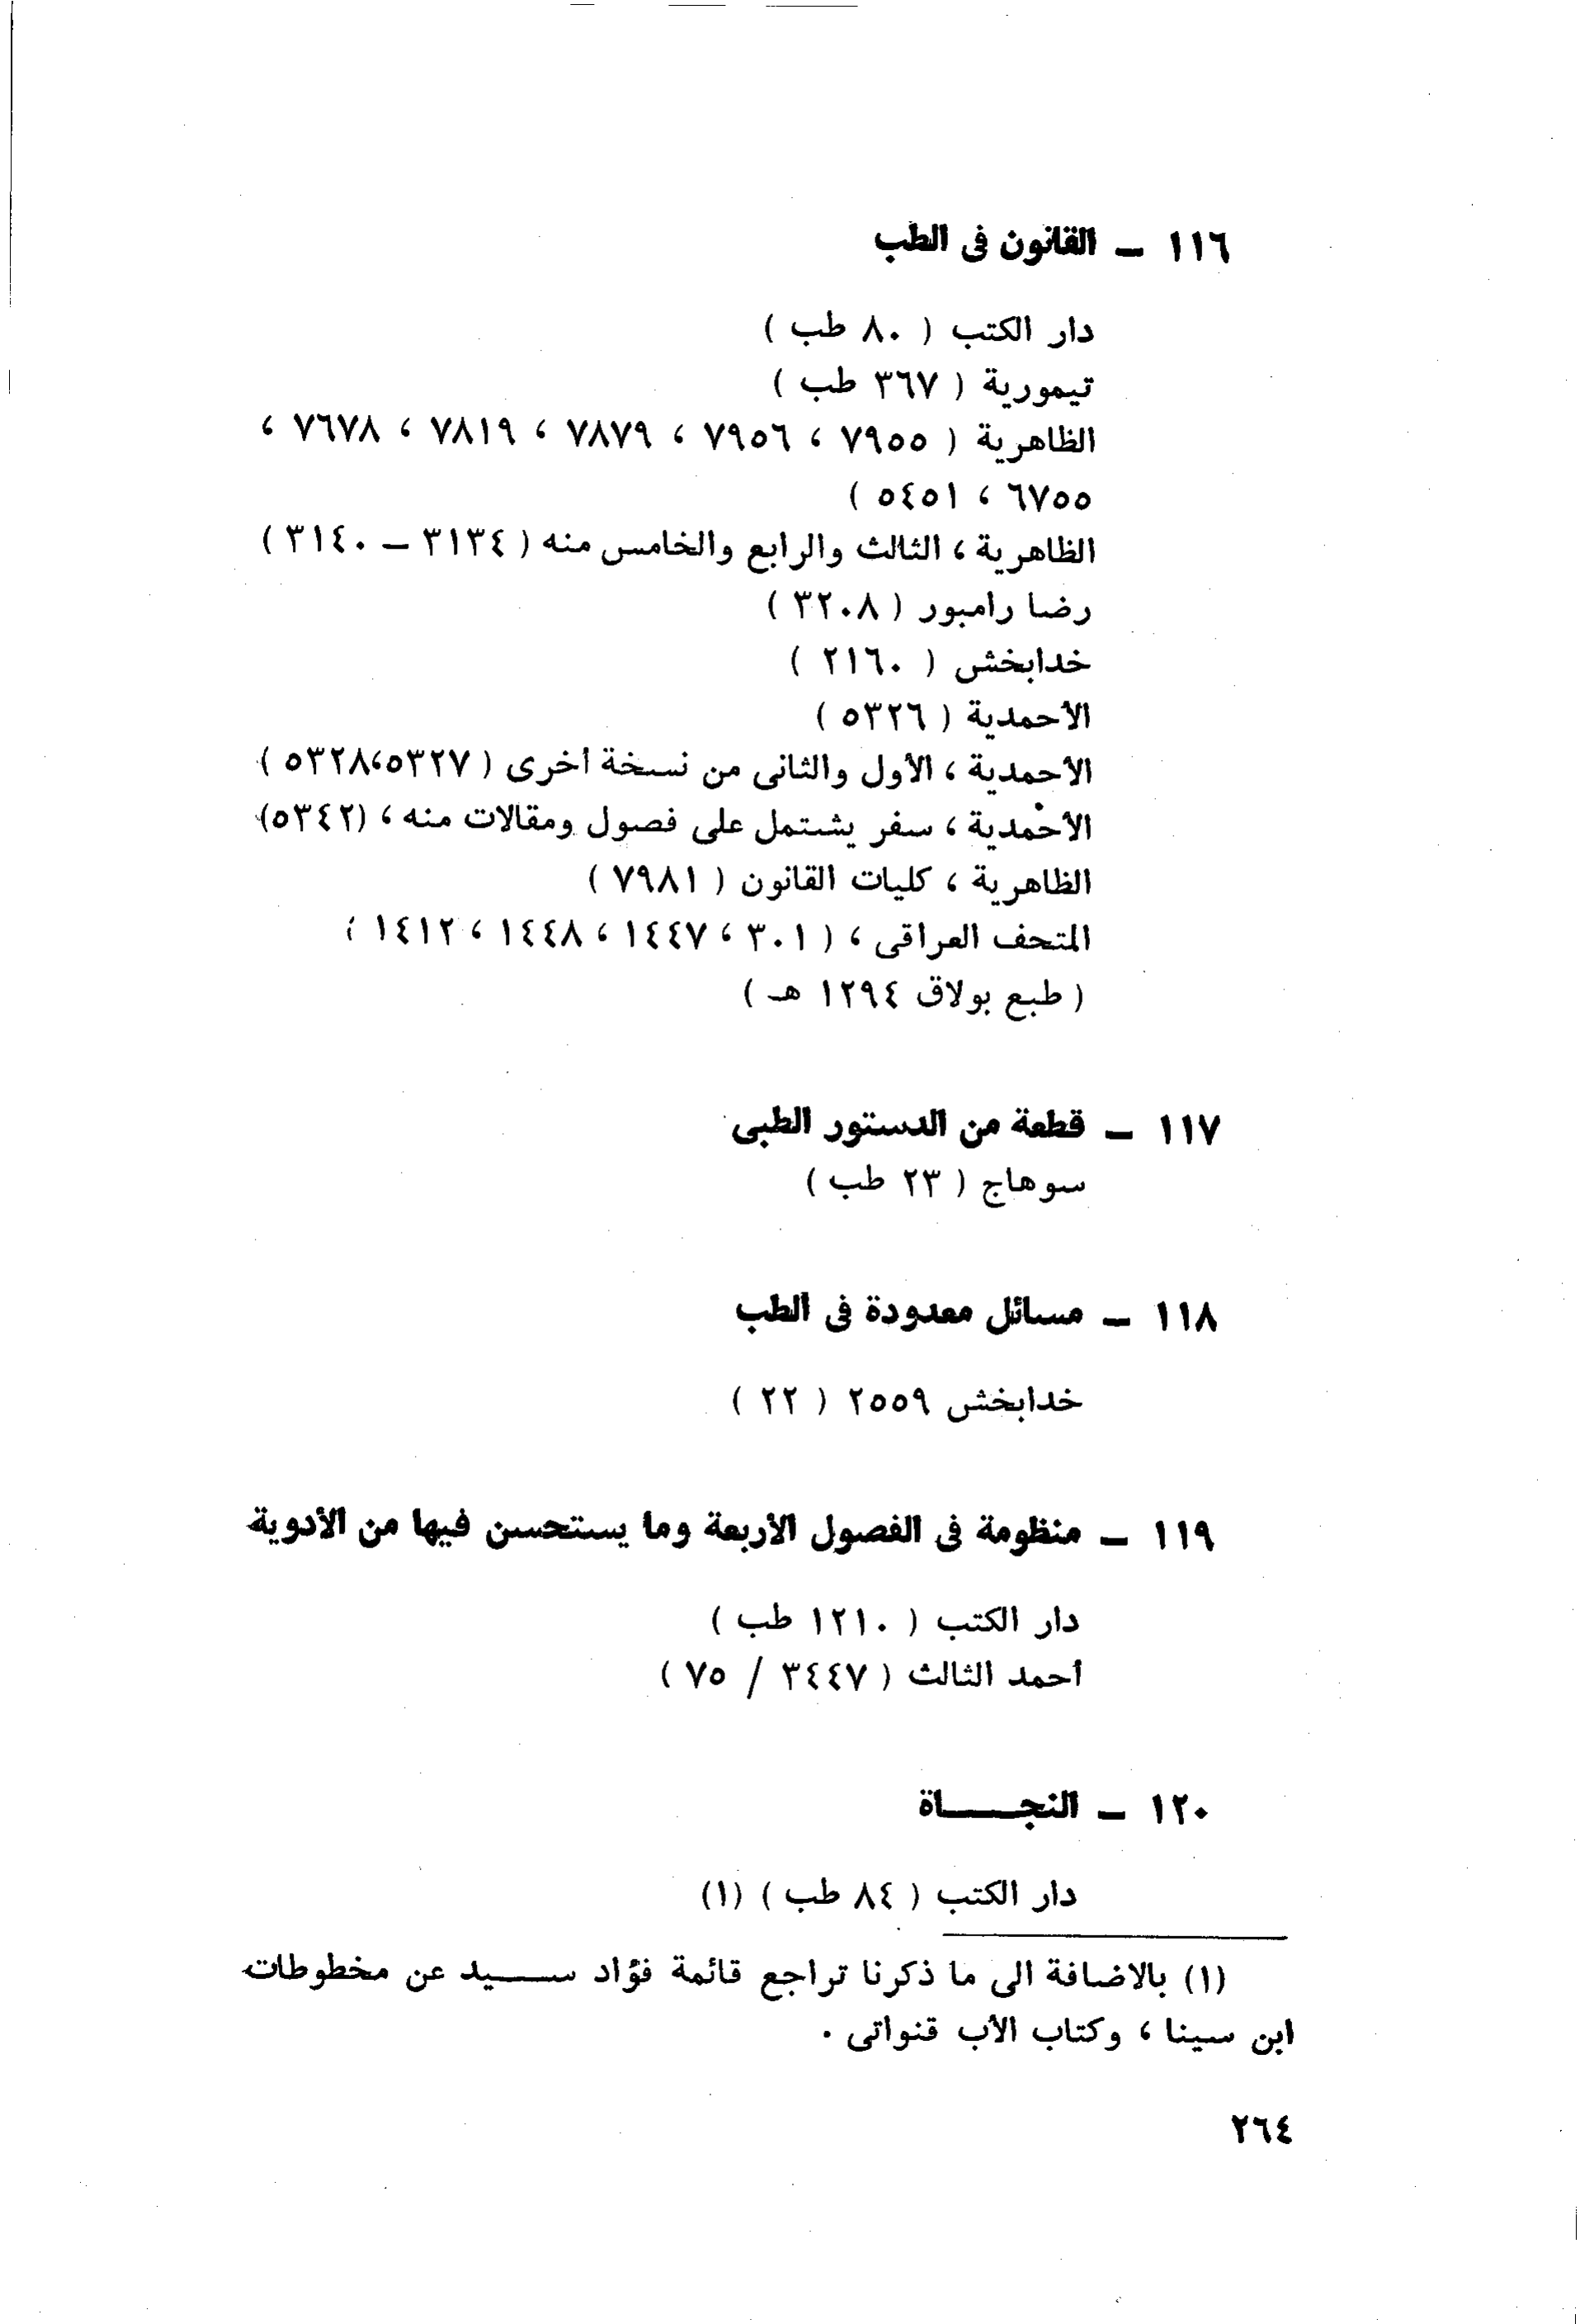 ١١٦ – القانون فى الطب
دار الكتب ( ٨٠ طب )
تيمورية ( ٣٦٧ طب )
الظاهرية ( ٧٩٥٥ ، ٧٩٥٦ ، ٧٨٧٩ ، ٧٨١٩ ، ٧٦٧٨ ،
٦٧٥٥ ، ٥٤٥١ )
الظاهرية ، الثالث والرابع والخامس منه ( ٣١٣٤ – ٣١٤٠ )
رضا رامبور ( ٣٢٠٨ )
خدابخش ( ٢١٦٠ )
الأحمدية ( ٥٣٢٦ )
الأحمدية ، الأول والثانى من نسخة أخرى ( ٥٣٢٧،٥٣٢٨ )
الأحمدية ، سفر يشتمل على فصول ومقالات منه ، (٥٣٤٢)
الظاهرية ، كليات القانون ( ٧٩٨١ )
المتحف العراقى ، ( ٣٠١ ، ١٤٤٧ ، ١٤٤٨ ، ١٤١٢ ؛
( طبع بولاق ١٢٩٤ هـ )
١١٧ – قطعة من الدستور الطبى
سوهاج ( ٢٣ طب )
١١٨ – مسائل معدودة فى الطب
خدابخش ٢٥٥٩ ( ٢٢ )
١١٩ – منظومة فى الفصول الأربعة وما يستحسن فيها من الأدوية
دار الكتب ( ١٢١٠ طب )
أحمد الثالث ( ٣٤٤٧ / ٧٥ )
١٢٠ – النجـــــاة
دار الكتب ( ٨٤ طب ) (١)
(١) بالاضافة الى ما ذكرنا تراجع قائمة فؤاد ســـــيد عن مخطوطات
ابن سينا ، وكتاب الأب قنواتى .
٢٦٤